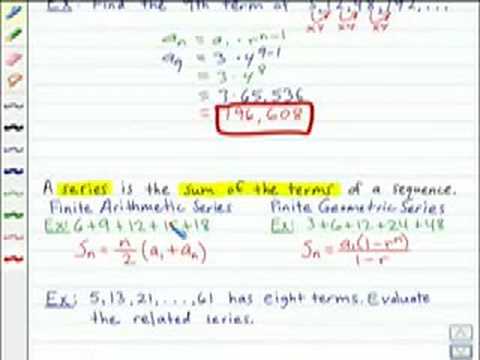 Ex: Find the 9th term of 3, 12, 48, 192, ...
x4 x4 x4
aₙ = a₁ · rⁿ⁻¹
a₉ = 3 · 4⁹⁻¹
= 3 · 4⁸
= 3 · 65,536
= 196,608
A series is the sum of the terms of a sequence.
Finite Arithmetic Series Finite Geometric Series
Ex: 6+9+12+15+18 Ex: 3+6+12+24+48
Sₙ = n/2 (a₁+aₙ) Sₙ = a₁(1-rⁿ)/1-r
Ex: 5, 13, 21, ..., 61 has eight terms. Evaluate
the related series.